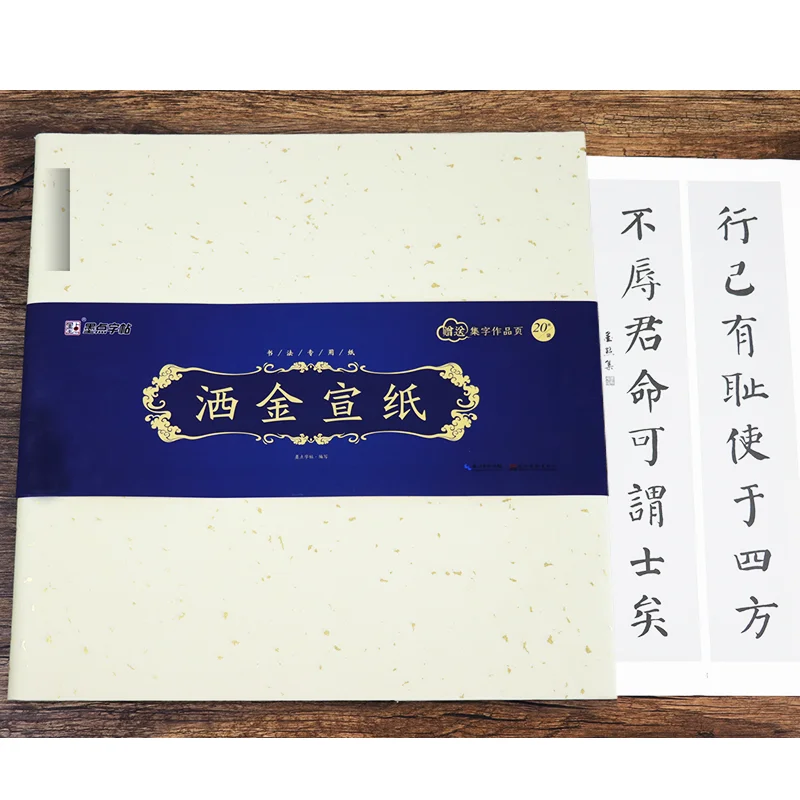 墨点字帖
赠送集字作品页
20
书/法/专/用/纸
洒金宣纸
墨点字帖·编写
行己有耻使于四方
不辱君命可謂士矣
墨点集